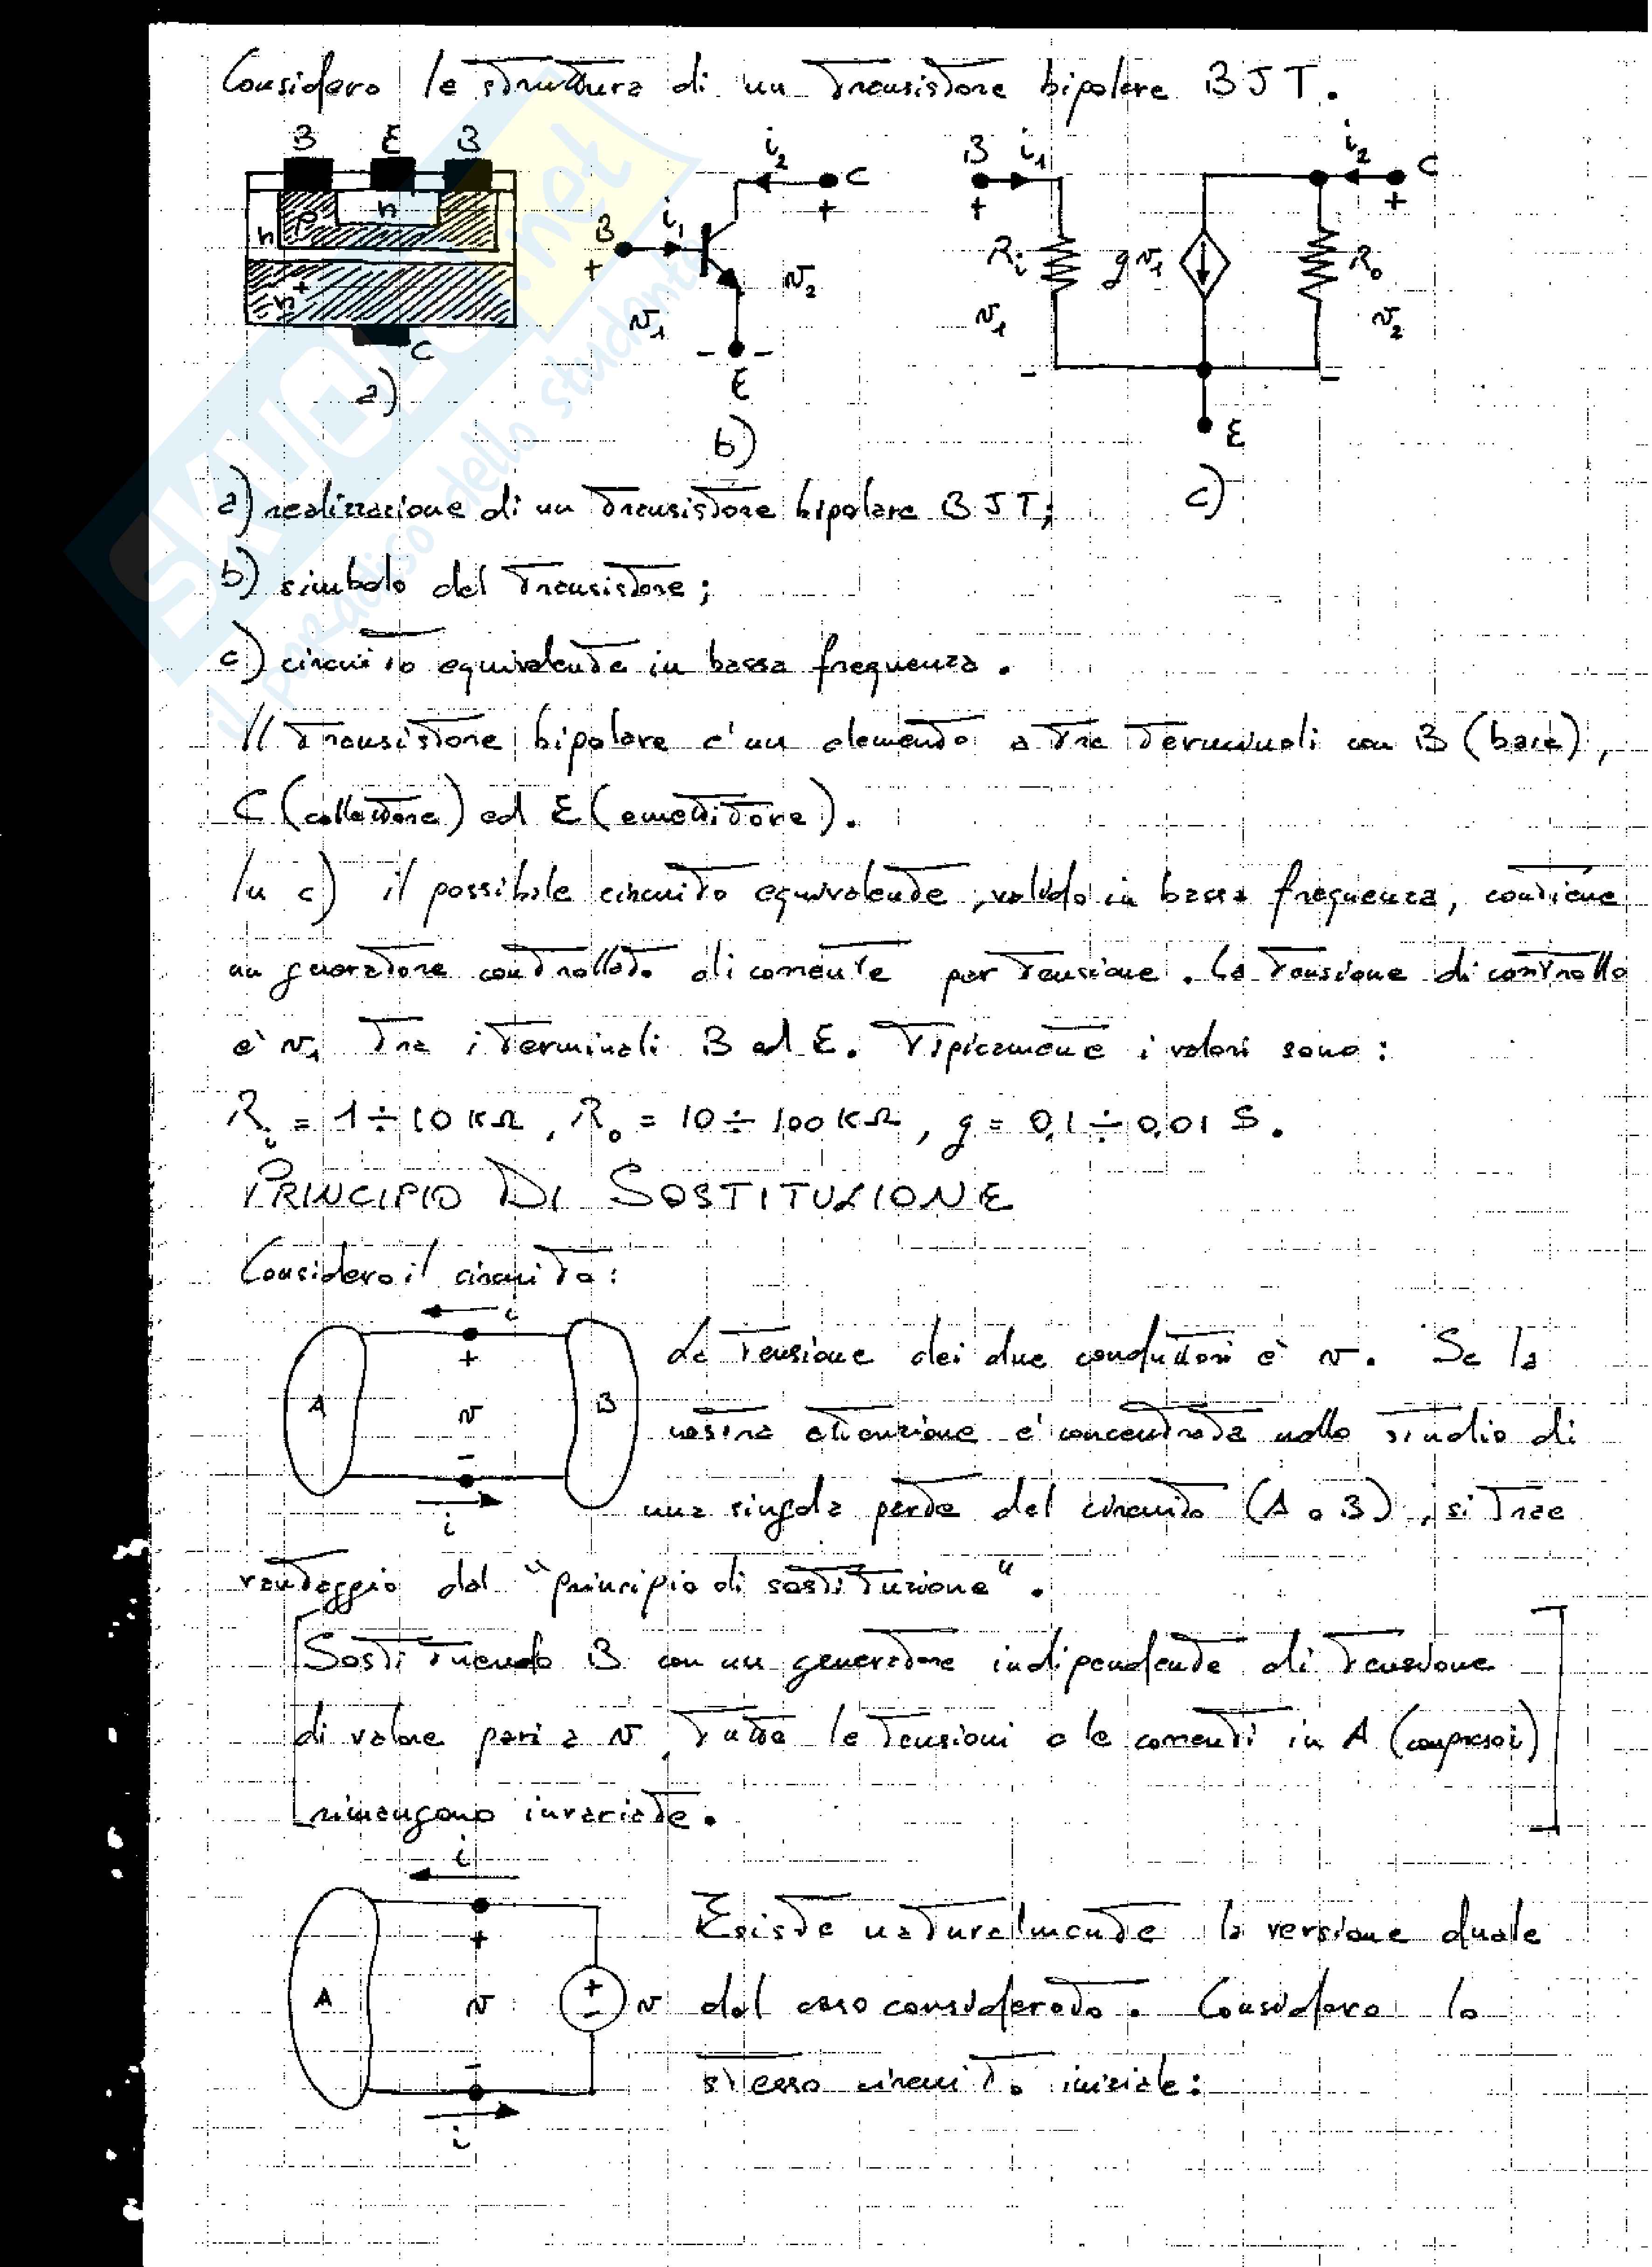 Considero la struttura di un transistore bipolare BJT.
B E B
n p n
n+
C
a)
B + i1 i2 C + v1 v2 - - E
b)
B i1 + Ri v1 - g v1 i2 C + Ro v2 - E
c)
a) realizzazione di un transistore bipolare BJT;
b) simbolo del transistore;
c) circuito equivalente in bassa frequenza.
Il transistore bipolare è un elemento a tre terminali con B (base),
C (collettore) ed E (emettitore).
In c) il possibile circuito equivalente, valido in bassa frequenza, contiene
un generatore controllato di corrente per tensione. La tensione di controllo
è v1 tra i terminali B ed E. Tipicamente i valori sono:
Ri = 1 ÷ 10 KΩ, Ro = 10 ÷ 100 KΩ, g = 0,1 ÷ 0,01 S.
PRINCIPIO DI SOSTITUZIONE
Considero il circuito:
i
A + v - B
i
La tensione dei due conduttori è v. Se la
nostra attenzione è concentrata nello studio di
una singola parte del circuito (A o B), si trae
vantaggio dal "principio di sostituzione".
Sostituendo B con un generatore indipendente di tensione
di valore pari a v, tutte le tensioni e le correnti in A (compresa i)
rimangono invariate.
i
A + v - + - v
i
Esiste naturalmente la versione duale
del caso considerato. Considero lo
stesso circuito iniziale:
SKUOLA.net
il paradiso dello studente